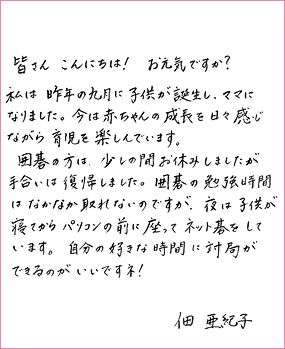 皆さん こんにちは! お元気ですか?
私は 昨年の九月に 子供が誕生し、ママに
なりました。今は赤ちゃんの成長を日々感じ
ながら 育児を楽しんでいます。
囲碁の方は、少しの間お休みしましたが
手合いは復帰しました。囲碁の勉強時間
はなかなか取れないのですが、夜は子供が
寝てからパソコンの前に座ってネット碁をして
います。自分の好きな時間に対局が
できるのがいいですネ!
佃 亜紀子